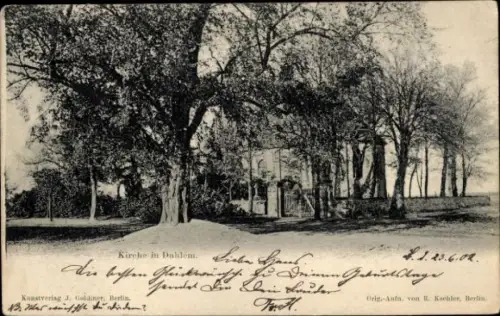 Kirche in Dahlem.
B. d. 23.6.02.
Liebe Hans.
Die besten Glückwünsche zu Deinem Geburtstage
sendet Dir Dein Bruder
Kunstverlag J. Goldiner, Berlin.
Orig.-Aufn. von R. Koehler, Berlin.
N3. Was machst Du denn?